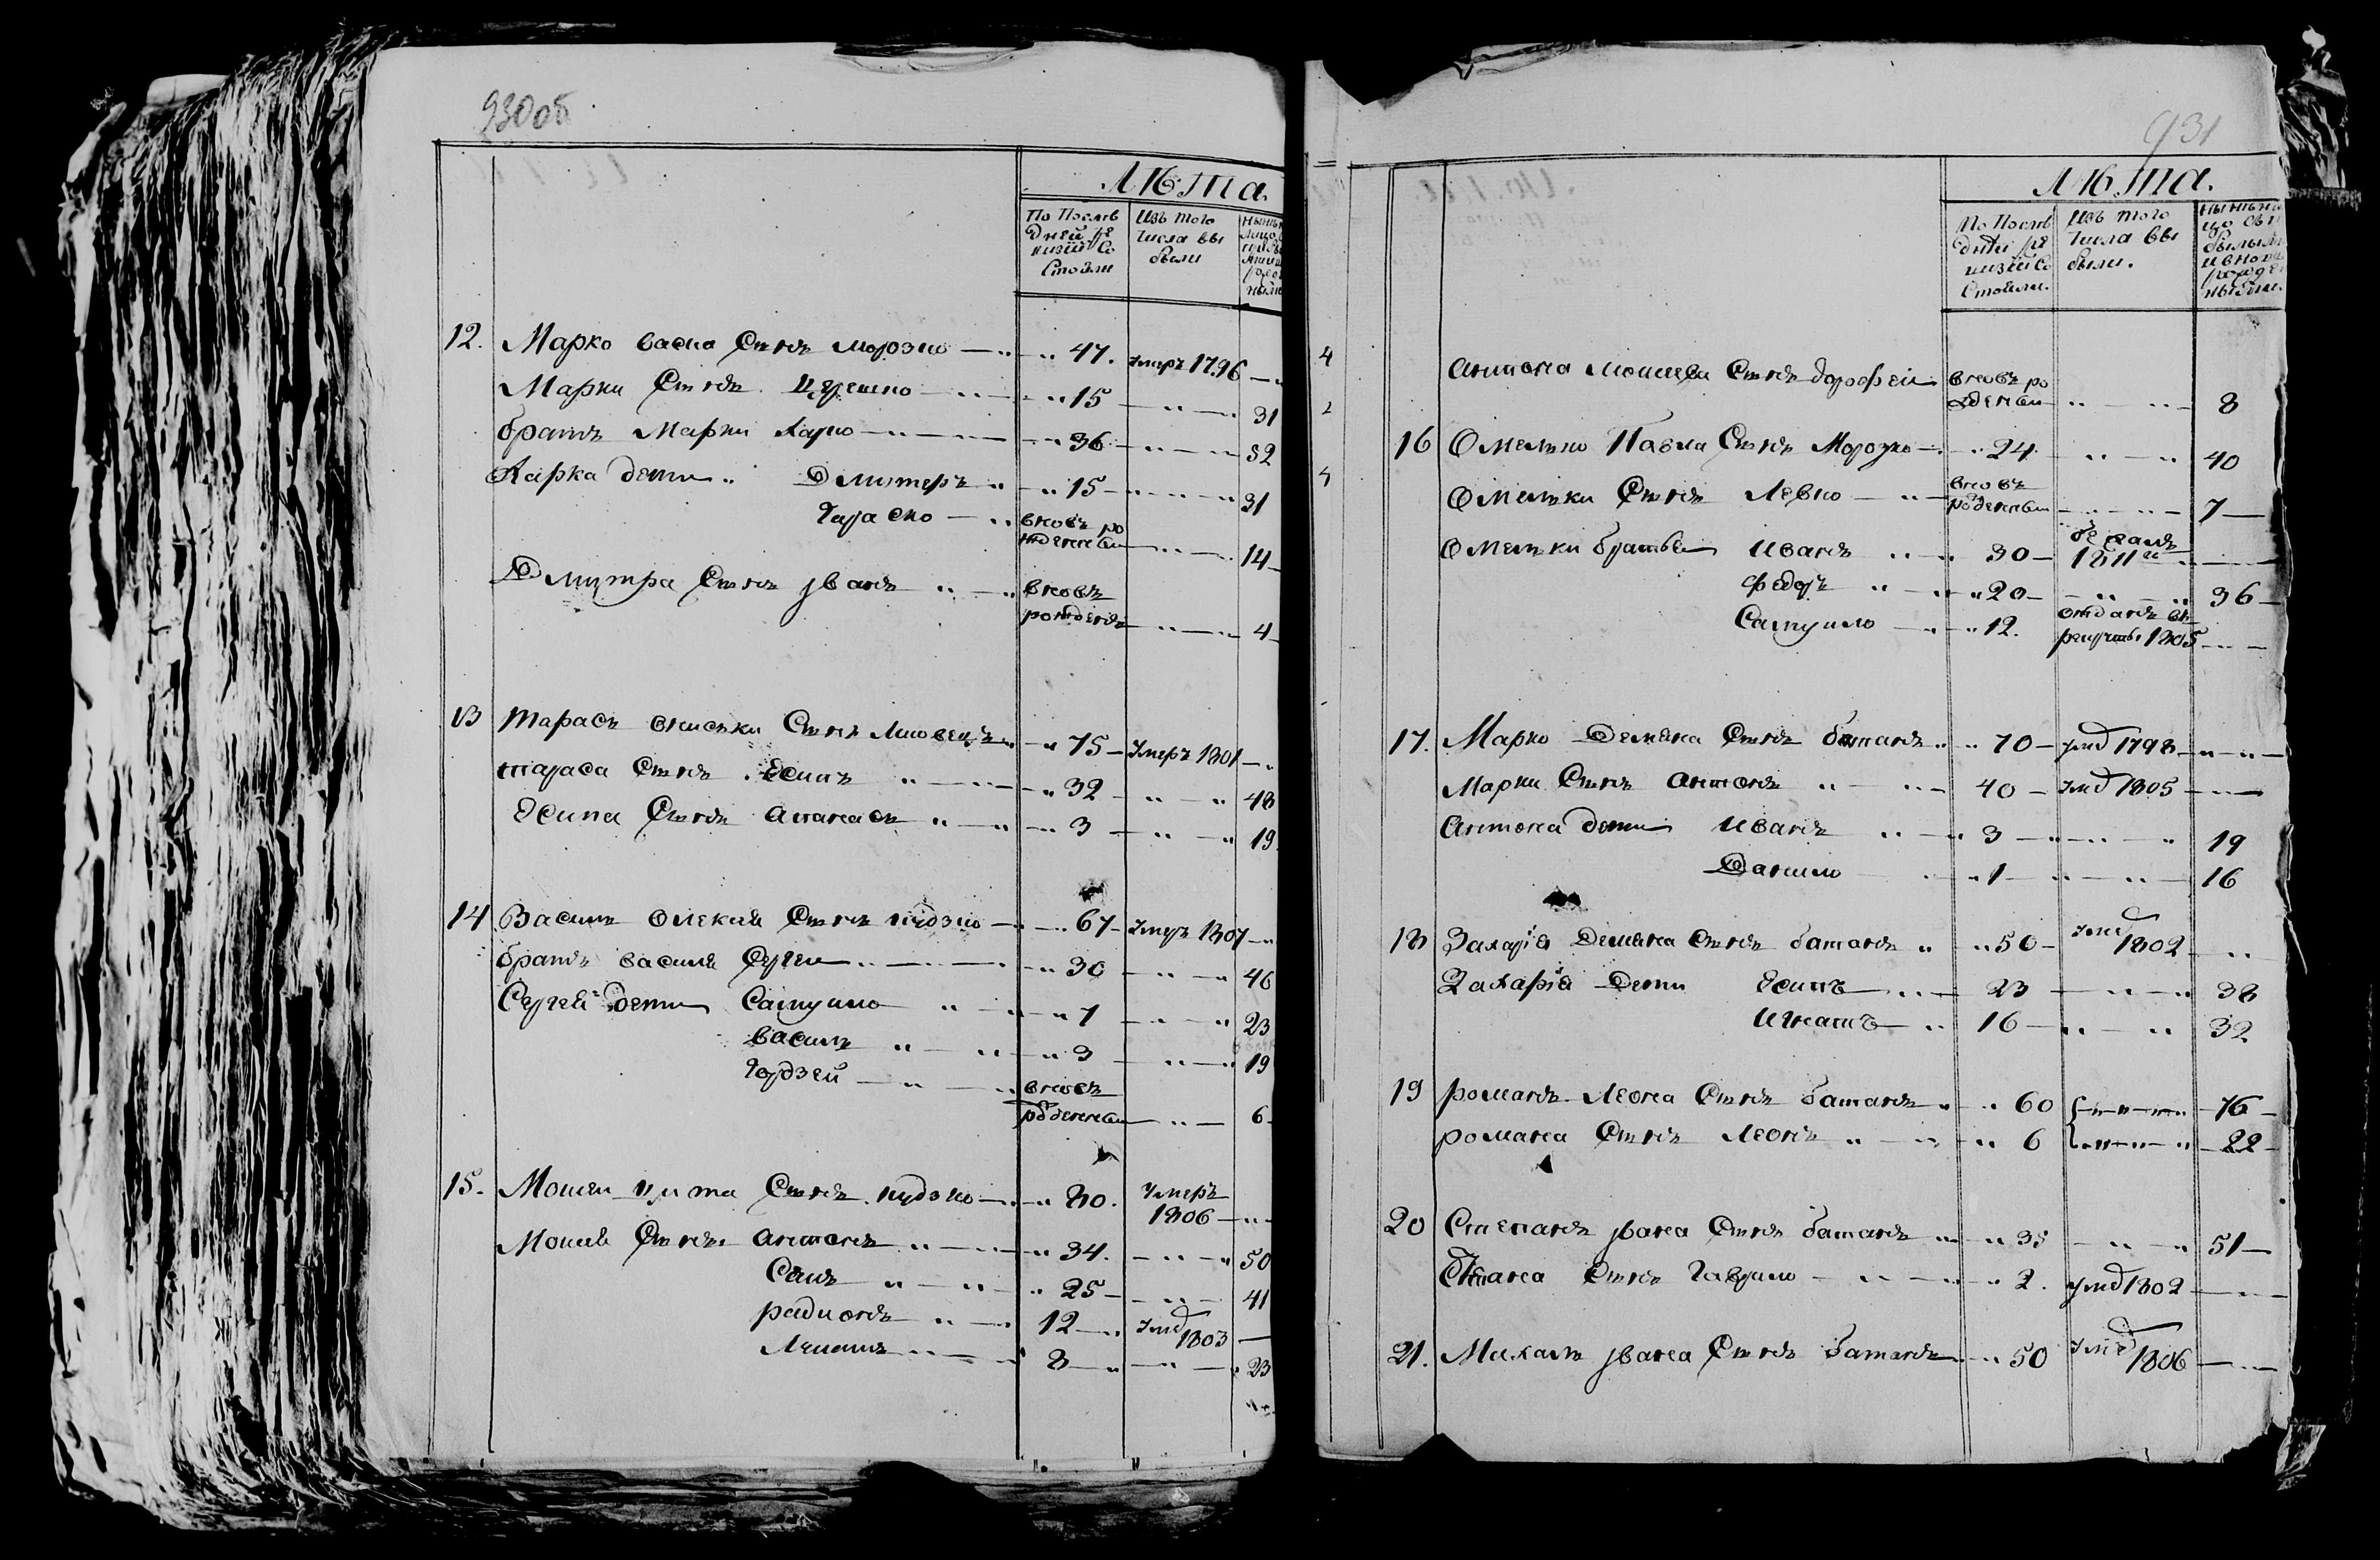 930об
Лѣта.
По Послѣ
дней ре
визіи Со
Стояли
Изъ того
Числа вы
были
12. Марко васка Сынъ морозко 47. умеръ 1796
Марки Сынъ 15 31
братъ Марки Карпо 36 52
Карка дети Дмитеръ 15 31
Тараско вновь ро
жденный 14
Дмитра Сынъ Jванъ вновь
рожденъ 4
13 Тарасъ Сынъ 75 Умеръ 1801
тараса Сынъ Есипъ 32 48
Эсипа Сынъ Апанасъ 3 19
14 Василь Олексѣя Сынъ кудзко 67 Умеръ 1807
братъ василя Сергеи 30 46
Сергея дети Самуило 7 23
василь 3 19
вновь
рожденный 6
15. Мошеи Сынъ кудзко 80. Умеръ
1806
Мошея Сынъ антонъ 34. 50
25 41
радионъ 12 Умер
1803
8 23
931
Лѣта.
По Послѣ
дней ре
визіи Со
Стояли.
Изъ того
Числа вы
были.
антона мошея Сынъ дорофеи вновь ро
жденный 8
16 Омелько Павла Сынъ Морозко 24 40
Омельки Сынъ Левко вновь
рожденный 7
Омельки братья Иванъ 30 бежалъ
1811
Федоръ 20 36
Самуило 12. отданъ въ
рекруты 1805
17. Марко Демяна Сынъ батанъ 70 умер 1798
Марки Сынъ антонъ 40 Умер 1805
антона дети Иванъ 3 19
Данило 1 16
18 Захарія Демяна Сынъ батанъ 50 Умер
1802
Захарія Дети Есипъ 23 38
Игнатъ 16 32
19 романъ Леона Сынъ батанъ 60 76
романа Сынъ Леонъ 6 22
20 Степанъ Jвана Сынъ батанъ 35 51
Сынъ Гаврило 2. умер 1802
21. Михалъ Jвана Сынъ батанъ 50 Умер
1806